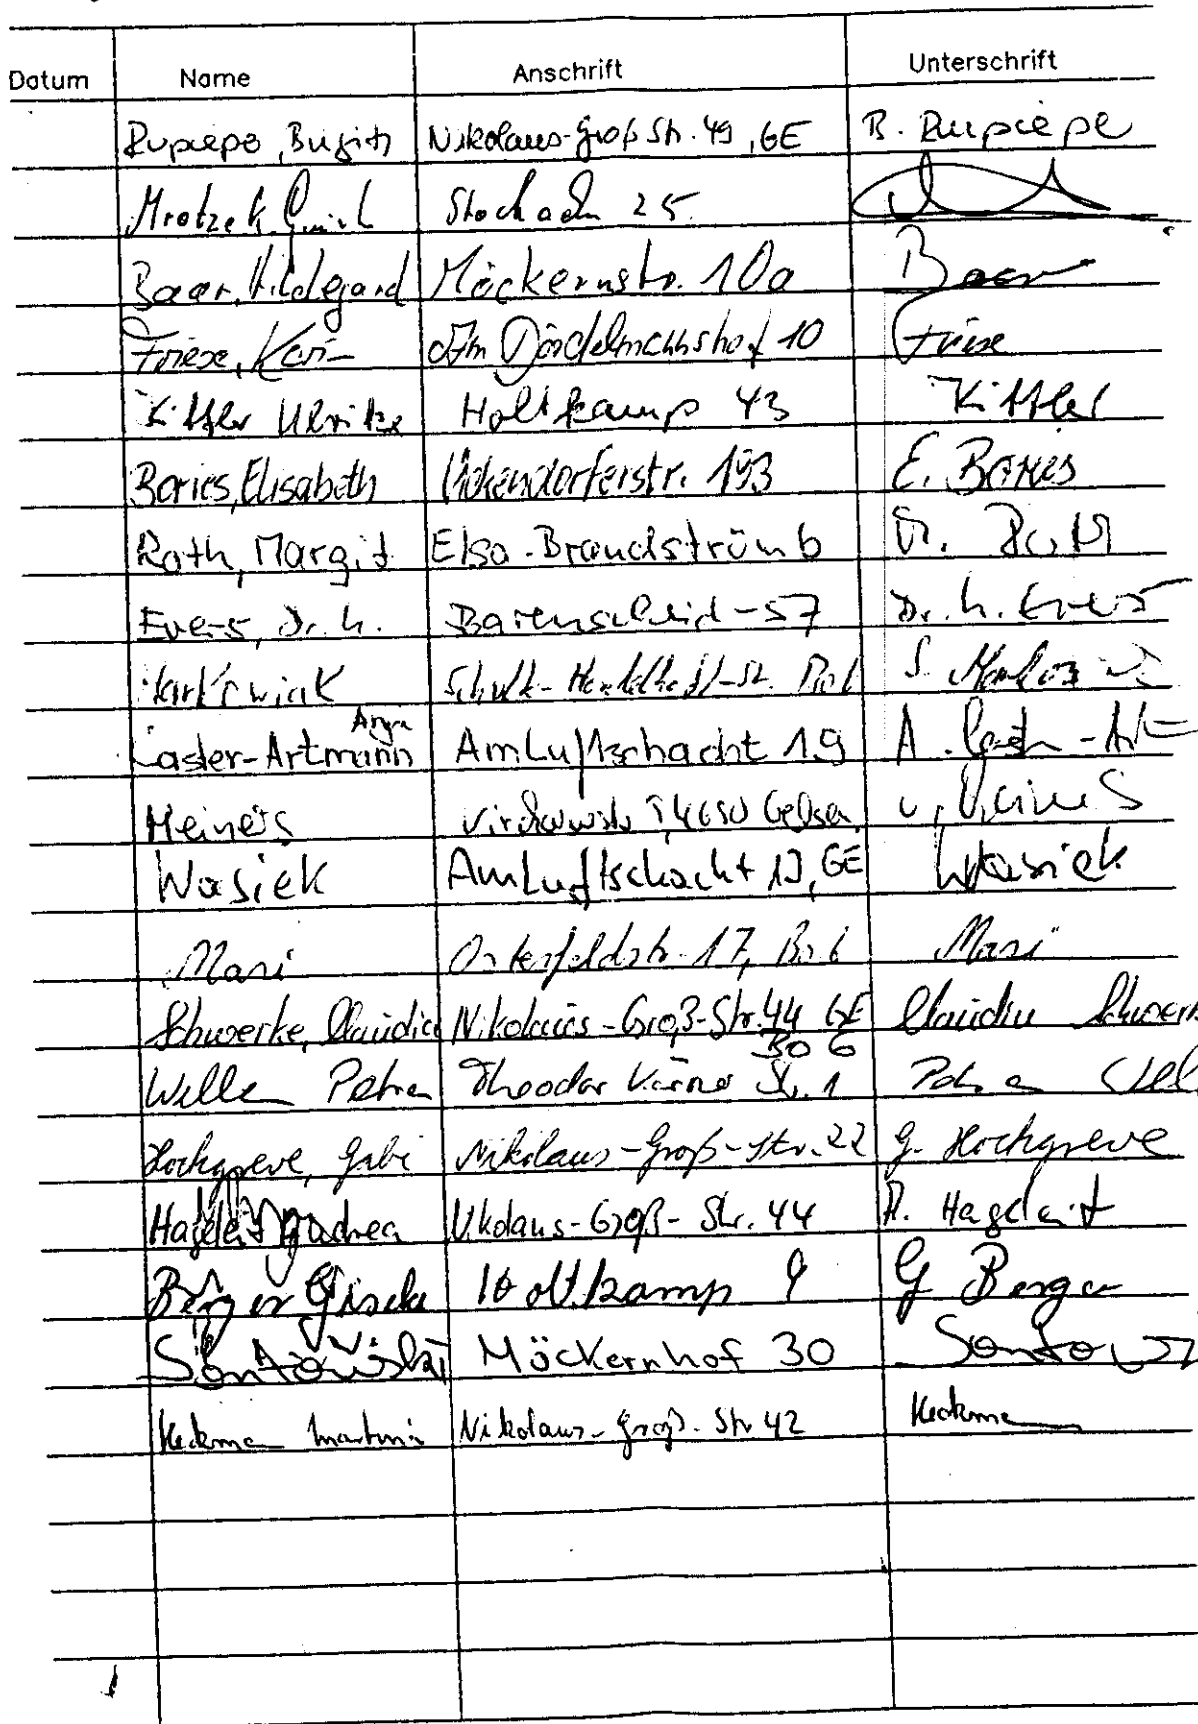 Datum Name Anschrift Unterschrift
Rupiepe, Birgitt Nikolaus-Groß Str. 49, GE B. Rupiepe
Mrotzek Stochach 25
Baar, Hildegard Möckernstr. 10a Baar
Friese, Karin Am Dördelmannshof 10 Friese
Kittler Ulrike Holtkamp 43 Kittler
Bories, Elisabeth Ückendorferstr. 193 E. Bories
Roth, Margit Elsa-Brandström 6 M. Roth
Evers, Dr. h. Barenscheid-57 Dr. h. Evers
Markowiak S.
Anja
Caster-Artmann Am Luftschacht 19 A.
Meiners Gelsen
Wasiek Am Luftschacht 19, GE Wasiek
Masi Osterfeldstr. 17, Bo 6 Masi
Schwerke, Claudia Nikolaus-Groß-Str. 44 GE Claudia Schwerk
Bo 6
Wille Petra Theodor Körner Str. 1 Petra
Hochgreve, Gabi Nikolaus-Groß-Str. 22 G. Hochgreve
Hageleit Andrea Nikolaus-Groß-Str. 44 A. Hageleit
Berger Gisela Holtkamp 9 G Berger
Sontowski Möckernhof 30 Sontowski
Heckman Martina Nikolaus-Groß-Str 42 Heckman